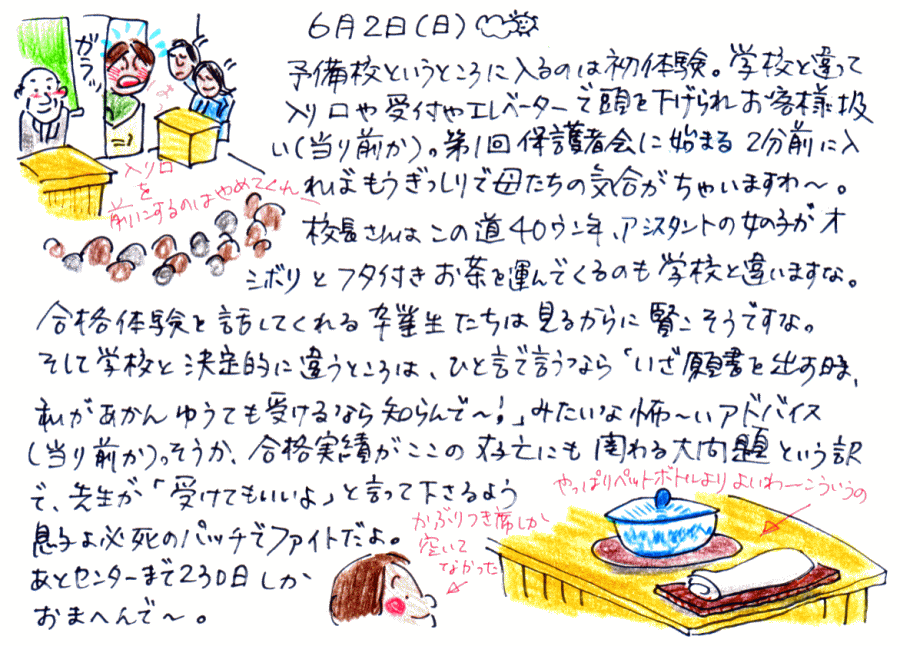 6月2日(日)
予備校というところに入るのは初体験。学校と違って
入り口や受付やエレベーターで頭を下げられお客様扱
い(当り前か)。第1回保護者会に始まる2分前に入
ればもうぎっしりで母たちの気合がちゃいますわ〜。
校長さんはこの道40ウン年、アシスタントの女の子がオ
シボリとフタ付きお茶を運んでくるのも学校と違いますな。
合格体験を話してくれる卒業生たちは見るからに賢こそうですな。
そして学校と決定的に違うところは、ひと言で言うなら「いざ願書を出す時、
私があかんゆうても受けるなら知らんで〜!」みたいな怖〜いアドバイス
(当り前か)っそうか、合格実績がここの存亡にも関わる大問題という訳
で、先生が「受けてもいいよ」と言って下さるよう
息子よ必死のパッチでファイトだよ。
あとセンターまで230日しか
おまへんで〜。
ガラッ
入り口
を
前にするのはやめてくれ
かぶりつき席しか
空いて
なかった
やっぱりペットボトルよりよいわーこういうの